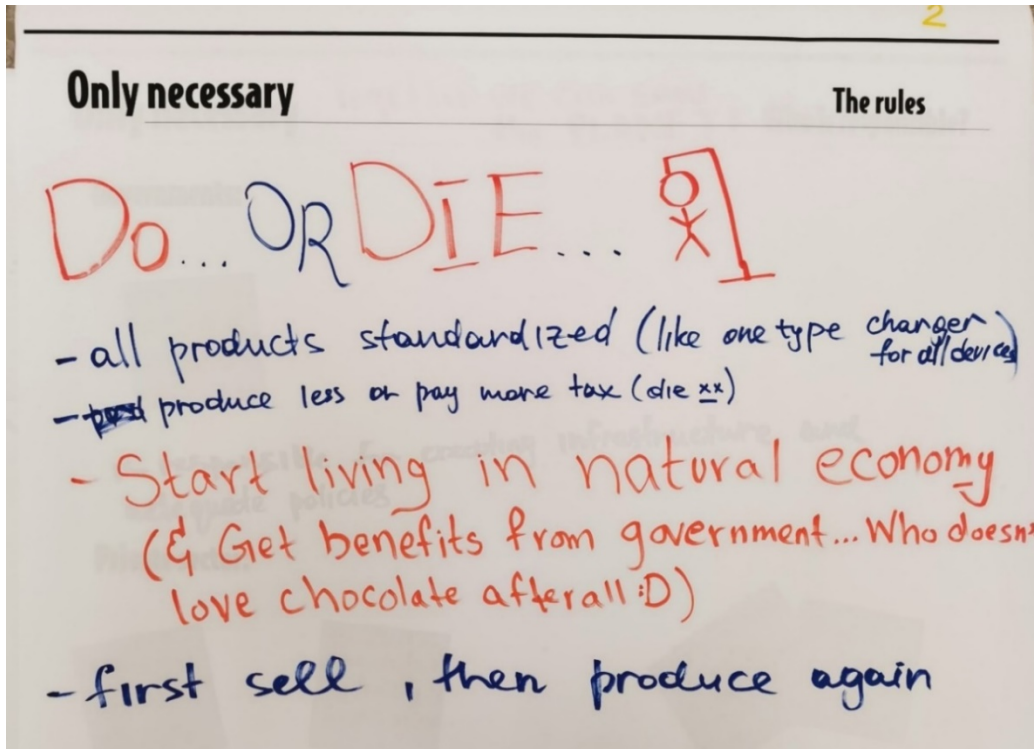 2
Only necessary
The rules
Do... OR DIE...
- all products standardized (like one type changer
for all devices)
- produce less or pay more tax (die xx)
- Start living in natural economy
(& Get benefits from government... Who doesn't
love chocolate afterall :D)
- first sell, then produce again